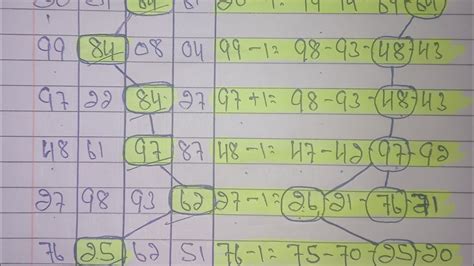 99 84 08 04 99-1= 98-93-48-43
97 22 84 27 97+1= 98-93-48-43
48 61 97 87 48-1= 47-42-97-92
27 98 93 62 27-1= 26-21-76-71
76 25 62 51 76-1= 75-70-25-20